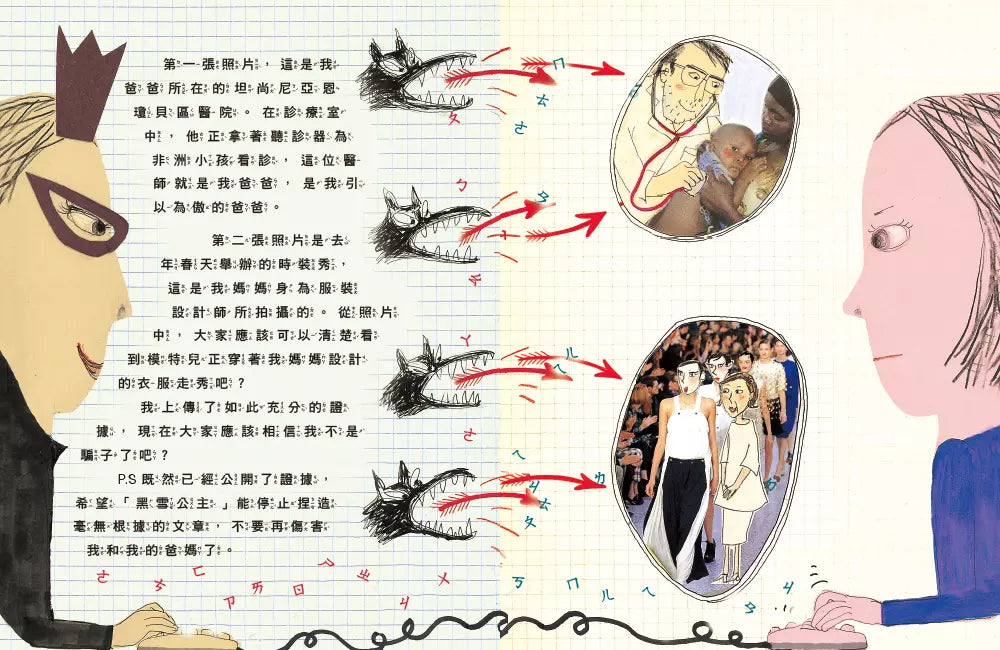 第一張照片，這是我
爸爸所在的坦尚尼亞恩
瓊貝區醫院。在診療室
中，他正拿著聽診器為
非洲小孩看診，這位醫
師就是我爸爸，是我引
以為傲的爸爸。
第二張照片是去
年春天舉辦的時裝秀，
這是我媽媽身為服裝
設計師所拍攝的。從照片
中，大家應該可以清楚看
到模特兒正穿著我媽媽設計
的衣服走秀吧？
我上傳了如此充分的證
據，現在大家應該相信我不是
騙子了吧？
P.S既然已經公開了證據，
希望「黑雪公主」能停止捏造
毫無根據的文章，不要再傷害
我和我的爸媽了。